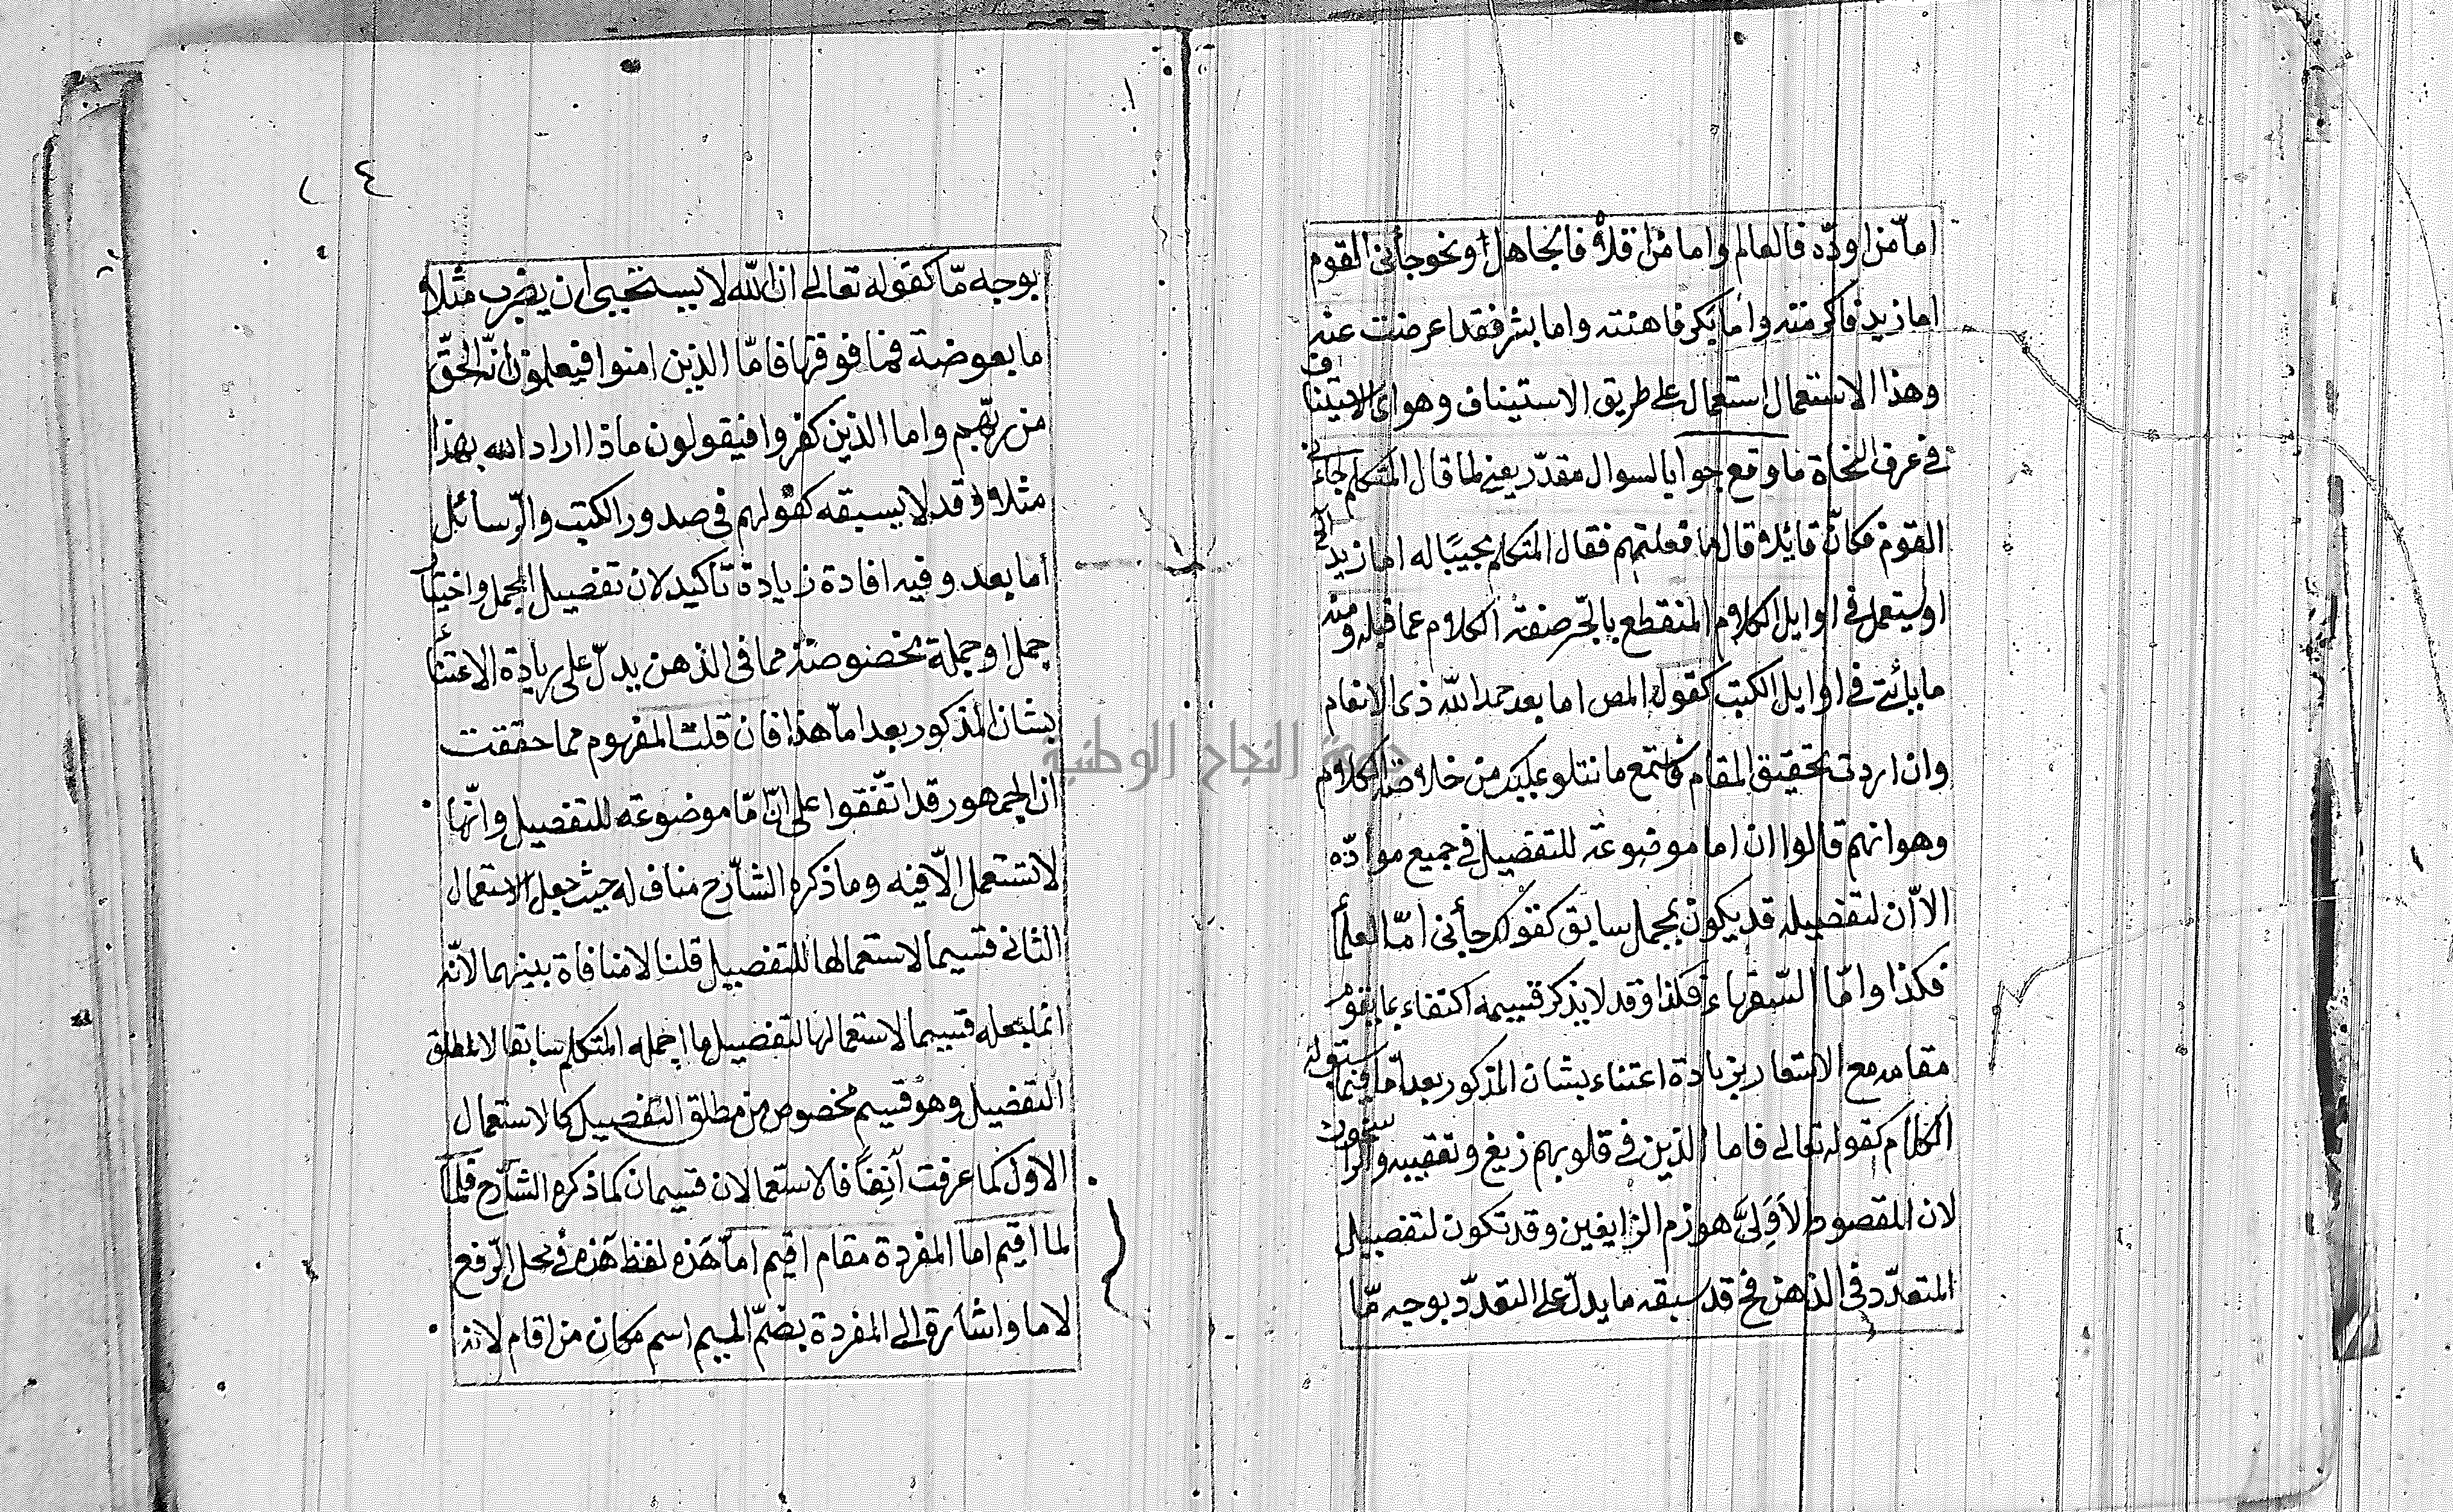 اما من اودّه فالعالم واما من اقلاه فالجاهل او نحو جأنى القوم
اما زيد فاكرمته واما بكر فاهنته واما بشر فقد اعرضت عنه
وهذا الاستعمال استعمال على طريق الاستيناف وهو اى الاستيناف
فى عرف النحاة ما وقع جوابا لسوال مقدّر يعنى لما قال المتكلم جاءنى
القوم فكانّ قائلا قال ما فعلت بهم فقال المتكلم مجيبًا له اما زيد الخ
او يستعمل فى اوايل الكلام المنقطع بالجّر صفة الكلام عما قبله ومنه
ما يأتى فى اوايل الكتب كقول المص اما بعد حمد الله ذى الانعام
وان اردت تحقيق المقام فاستمع ما نتلو عليك من خلاصة الكلام
وهو انهم قالوا ان اما موضوعة للتفصيل فى جميع موادّه
الاّ ان لتفصيله قد يكون بمجمل سابق كقولك جأنى امّا العلمأ
فكذا وامّا السّفهاء فكذا وقد لا يذكر قسيمه اكتفاء بما يقوم
مقامه مع الاشعار بزيادة اعتناء بشان المذكور بعد امّا فيما سبق له
الكلام كقوله تعالى فاما الذين فى قلوبهم زيغ وتعقيبه والراسخون
لان المقصود الاَوّلىَّ هو زم الزايغين وقد تكون لتفصيل
المتعدّد فى الذهن فح قد سبقه ما يدلّ على التعدّد بوجه مّا
٤
بوجه مّا كقوله تعالى ان الله لا يستحيى ان يضرب مثلا
ما بعوضة فما فوقها فامّا الذين امنوا فيعلمون انّه الحقّ
من ربّهم واما الذين كفروا فيقولون ماذا اراد الله بهذا
مثلا وقد لا يسبقه كقولهم فى صدور الكتب والرّسائل
اما بعد وفيه افادة زيادة تأكيد لان تفصيل المجمل واختيار
جمل او جملة مخصوصة مما فى الذهن يدلّ على زيادة الاعتناء
بشان المذكور بعد امّا هذا فان قلت المفهوم مما حققت
ان الجمهور قد اتّفقوا على انّ امّا موضوعة للتفصيل وانّها
لا تستعمل الاّ فيه وما ذكره الشّارح مناف له حيث جعل الاستعمال
الثانى قسيما لاستعمالها للتفصيل قلنا لا منافاة بينهما لانّه
انما يجعله قسيما لاستعمالها لتفصيل ما اجمله المتكلم سابقا لا لمطلق
التفصيل وهو قسيم مخصوص من مطلق التفصيل كالاستعمال
الاوّل كما عرفت آنِفًا فالاستعمالان قسيمان كما ذكره الشّارح فلمّا
لما اقيم اما المفردة مقام اقيم امّا هَذه لفظ هَذه فى محل الرّفع
لاما واشارة الى المفردة بضمّ الميم اسم مكان من اقام لانه
جامعة النجاح الوطنية